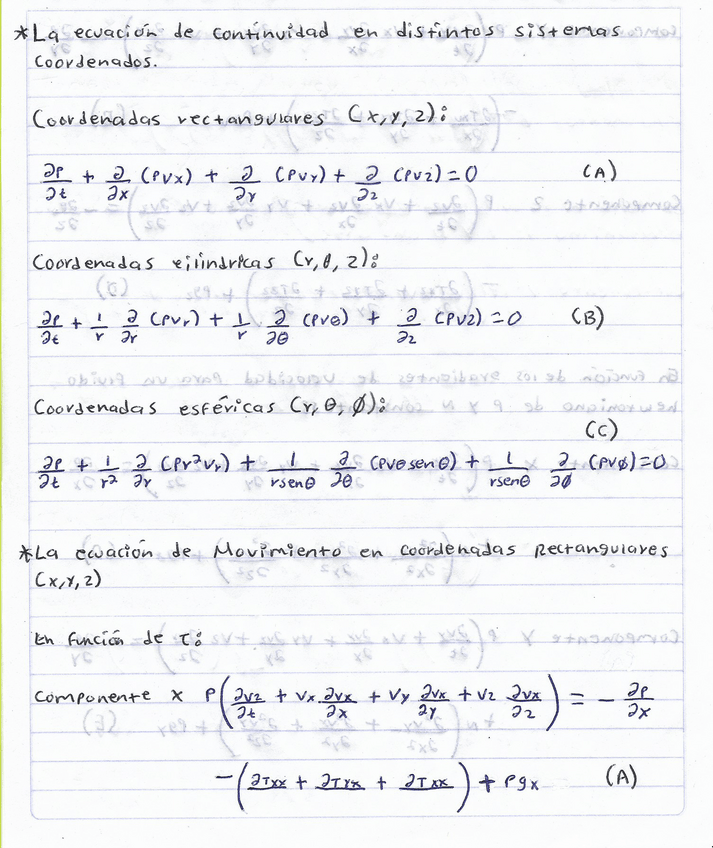 *La ecuación de continuidad en distintos sistemas
coordenados.
Coordenadas rectangulares (x,y,z):
∂ρ/∂t + ∂/∂x (ρvx) + ∂/∂y (ρvy) + ∂/∂z (ρvz) = 0 (A)
Coordenadas cilíndricas (r,θ,z):
∂ρ/∂t + 1/r ∂/∂r (ρvr) + 1/r ∂/∂θ (ρvθ) + ∂/∂z (ρvz) = 0 (B)
Coordenadas esféricas (r,θ,ϕ):
(C)
∂ρ/∂t + 1/r² ∂/∂r (ρr²vr) + 1/rsenθ ∂/∂θ (ρvθsenθ) + 1/rsenθ ∂/∂ϕ (ρvϕ) = 0
*La ecuación de Movimiento en coordenadas Rectangulares
(x,y,z)
En función de τ:
Componente x ρ(∂vz/∂t + vx ∂vx/∂x + vy ∂vx/∂y + vz ∂vx/∂z) = - ∂p/∂x
-(∂τxx + ∂τyx + ∂τxx) + ρgx (A)